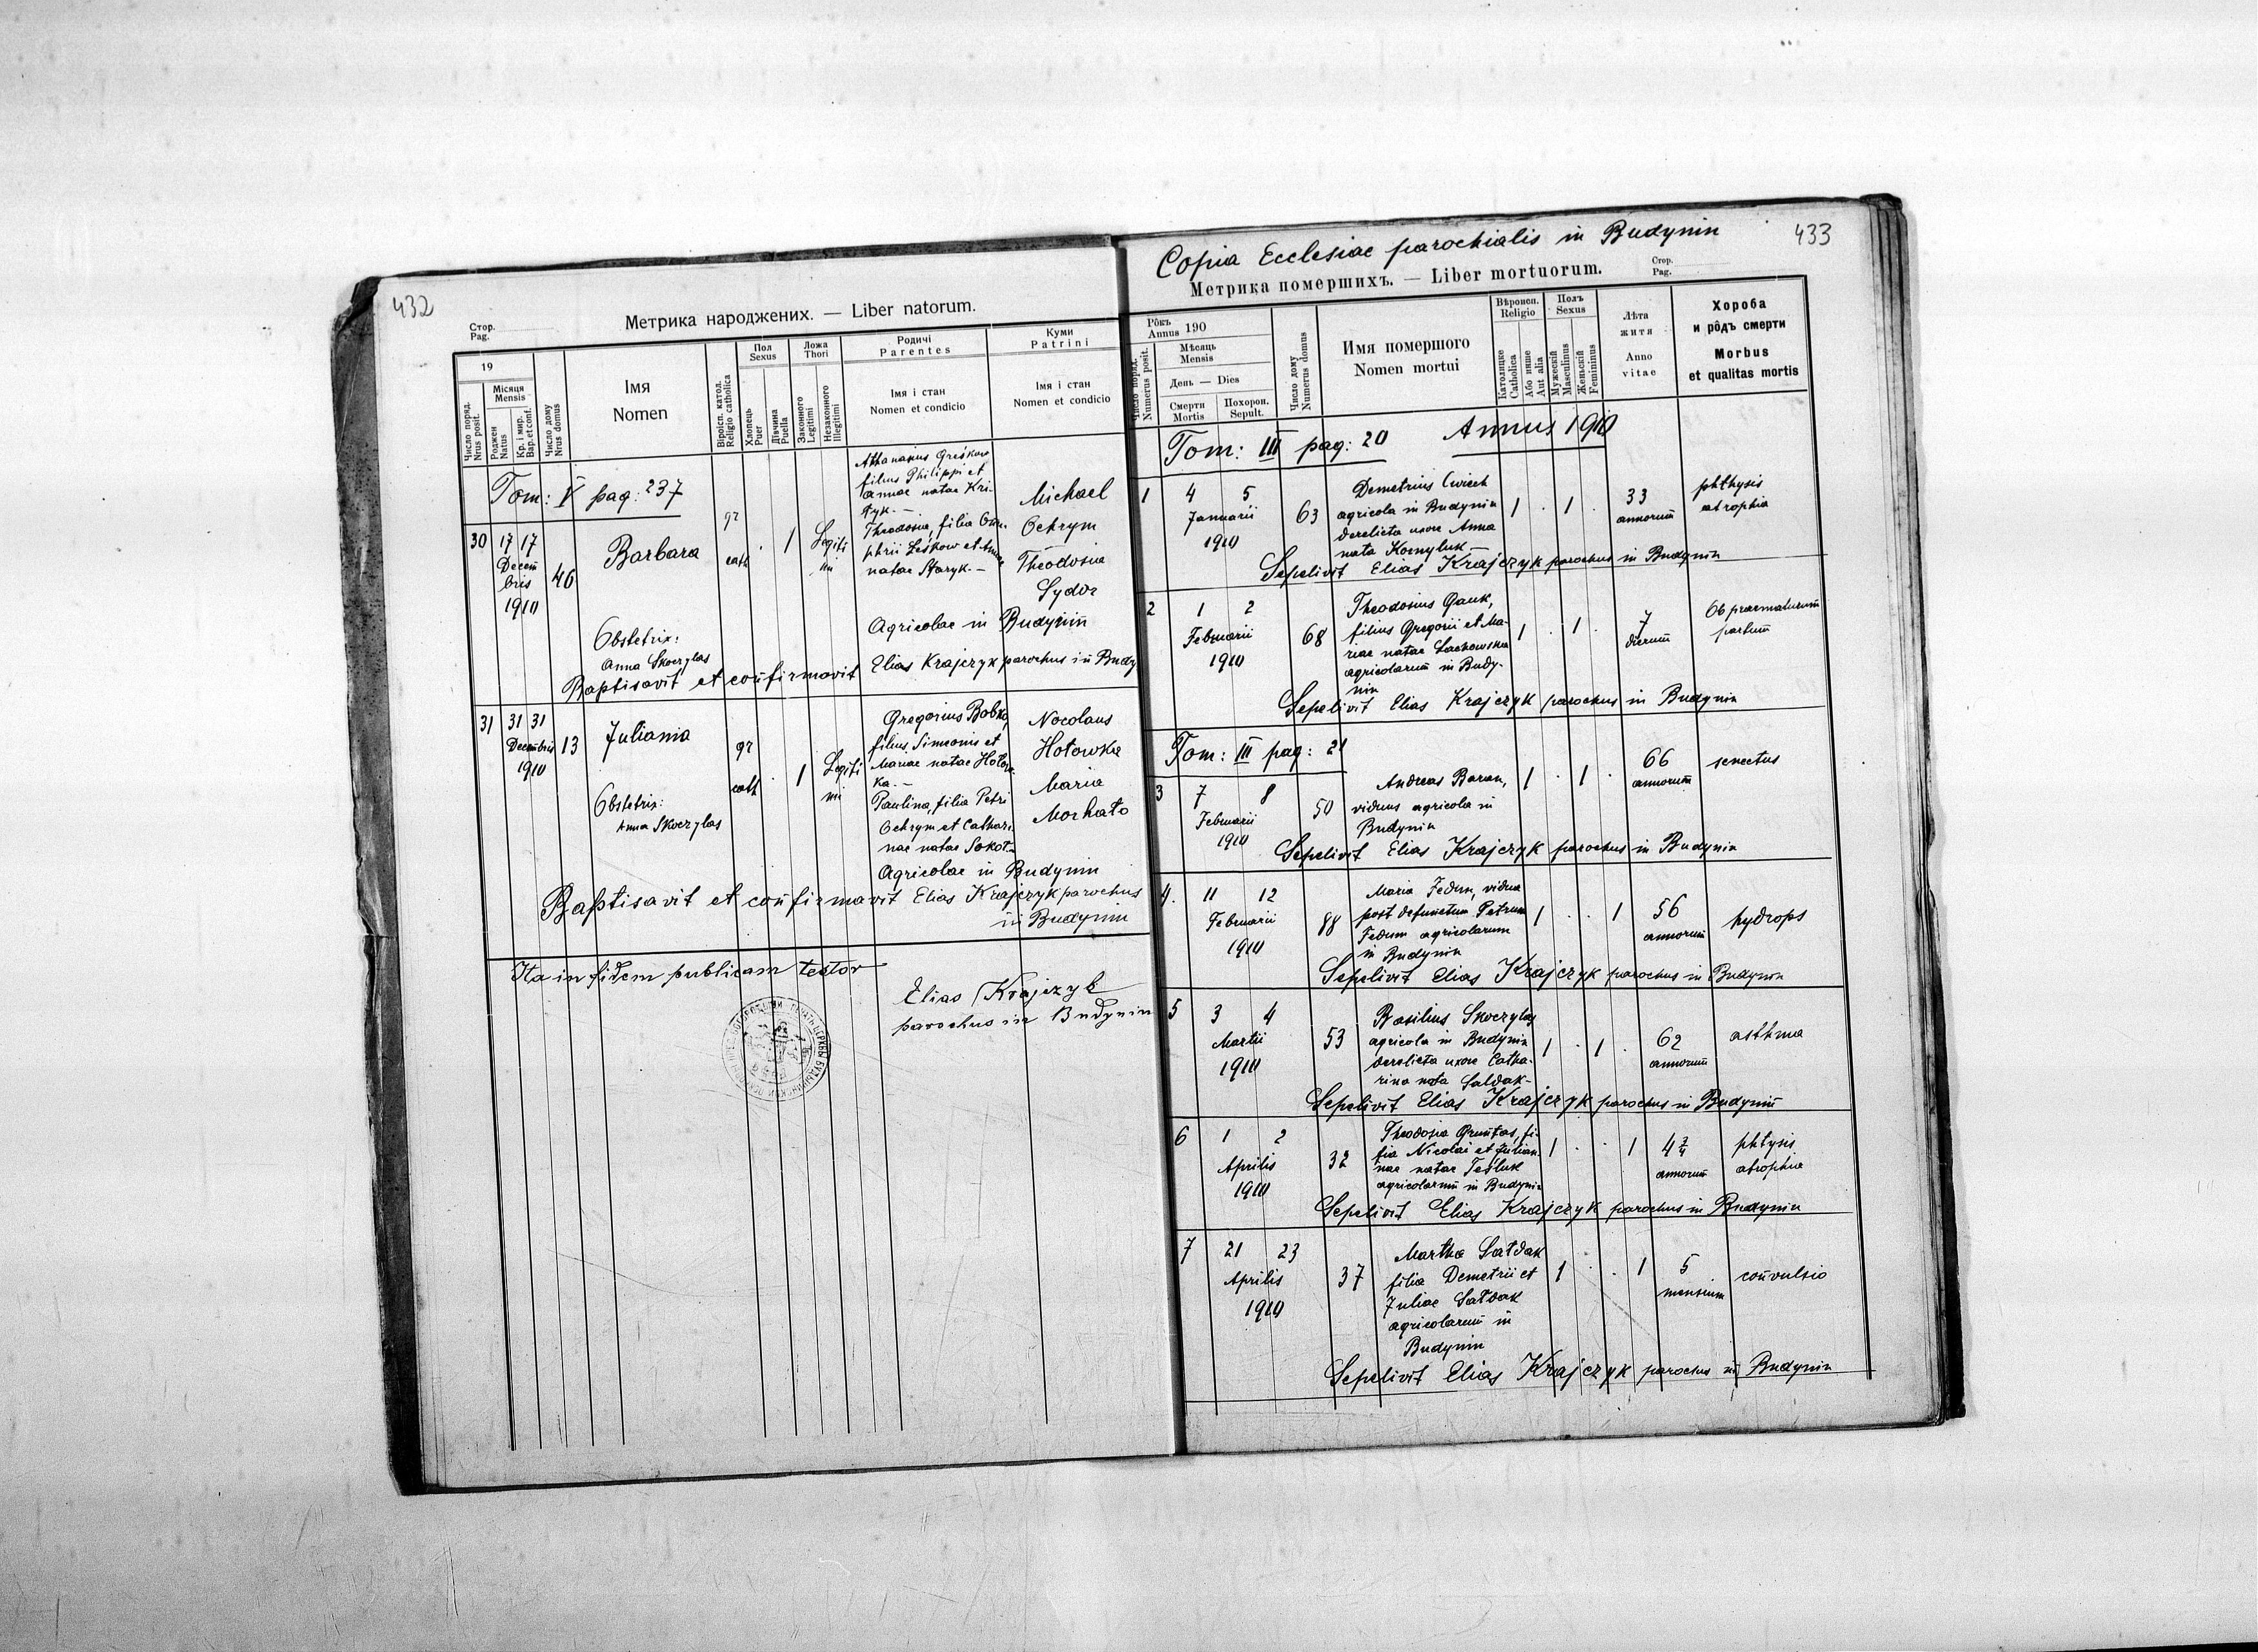 432
Стор.
Pag.
Метрика народжених. — Liber natorum.
19
Число поряд.
Nrus posit.
Місяця
Mensis
Роджен
Natus
Кр. і мир.
Bap. et conf.
Число дому
Nrus domus
Імя
Nomen
Віроісп. катол.
Religio catholica
Пол
Sexus
Хлопець
Puer
Дівчина
Puella
Ложа
Thori
Законного
Legitimi
Незаконного
Illegitimi
Родичі
Parentes
Імя і стан
Nomen et condicio
Куми
Patrini
Імя і стан
Nomen et condicio
Tom: V pag: 237
30 17 17
Decem
bris
1910
46
Barbara
gr
cath
1
Legiti
mi
Athanasius Greśkow
filius Philippi et
Annae natae Kri-
tyk.-
Theodosia, filia Onu-
phrii Leśkow et Annae
natae Staryk.-
Agricolae in Budynin
Michael
Ochrym
Theodosia
Sydor
Obstetrix:
Anna Skoczylas
Baptisavit et confirmavit Elias Krajczyk parochus in Budy
31 31 31
Decembris
1910
13
Juliania
gr
cath
1
Legiti
mi
Gregorius Bobko,
filius Simeonis et
Mariae natae Hołow-
ka.-
Paulina, filia Petri
Ochrym et Cathari-
nae natae Sokoł-
Agricolae in Budynin
Nocolaus
Hołowka
Maria
Morhało
Obstetrix:
Anna Skoczylas
Baptisavit et confirmavit Elias Krajczyk parochus
in Budynin
Ita in fidem publicam testor
Elias Krajczyk
parochus in Budynin
433
Copia Ecclesiae parochialis in Budynin
Метрика померших. — Liber mortuorum.
Стор.
Pag.
Число поряд.
Numerus posit.
Рôкъ
Annus 190
Мѣсяць
Mensis
День — Dies
Смерти
Mortis
Похорон.
Sepult.
Число дому
Numerus domus
Имя помершого
Nomen mortui
Вѣроисп.
Religio
Католицке
Catholica
Або инше
Aut alia
Полъ
Sexus
Мужескій
Masculinus
Женьскій
Femininus
Лѣта
житя
Anno
vitae
Хороба
и рôдъ смерти
Morbus
et qualitas mortis
Tom: III pag: 20 Annus 1910
1 4 5
Januarii
1910
63
Demetrius Cwiech
agricola in Budynin
derelicta uxore Anna
nata Kornyluk
1 . 1 .
33
annorum
phthysis
atrophia
Sepelivit Elias Krajczyk parochus in Budynin
2 1 2
Februarii
1910
68
Theodosius Gauk,
filius Gregorii et Ma-
riae natae Lachowska
agricolarum in Budy-
nin
1 . 1 .
7
dierum
Ob praematurum
partum
Sepelivit Elias Krajczyk parochus in Budynin
Tom: III pag: 21
3 7 8
Februarii
1910
50
Andreas Baran,
viduus agricola in
Budynin
1 . 1 .
66
annorum
senectus
Sepelivit Elias Krajczyk parochus in Budynin
4. 11 12
Februarii
1910
88
Maria Fedun, vidua
post defunctum Petrum
Fedun agricolarum
in Budynin
1 . . 1
56
annorum
hydrops
Sepelivit Elias Krajczyk parochus in Budynin
5 3 4
Martii
1910
53
Basilius Skoczylas
agricola in Budynin
derelicta uxore Catha-
rina nata Saldak-
1 . 1 .
62
annorum
asthma
Sepelivit Elias Krajczyk parochus in Budynin
6 1 2
Aprilis
1910
32
Theodosia Gruntas, fi-
lia Nicolai et Julian-
nae natae Tesluk
agricolarum in Budynin
1 . . 1
4
annorum
phtysis
atrophia
Sepelivit Elias Krajczyk parochus in Budynin
7 21 23
Aprilis
1910
37
Martha Sałdak
filia Demetrii et
Juliae Sałdak
agricolarum in
Budynin
1 . . 1
5
mensium
convulsio
Sepelivit Elias Krajczyk parochus in Budynin